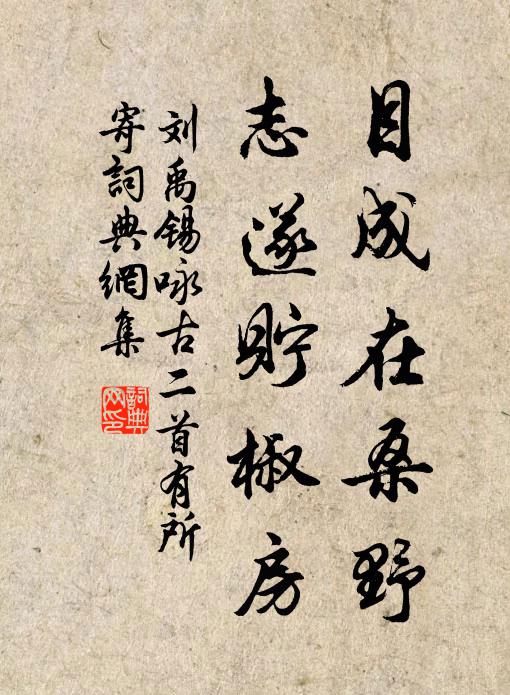 目成在桑野
志遂貯椒房
刘禹锡咏古二首有所
寄詞典網集
詞典
网印